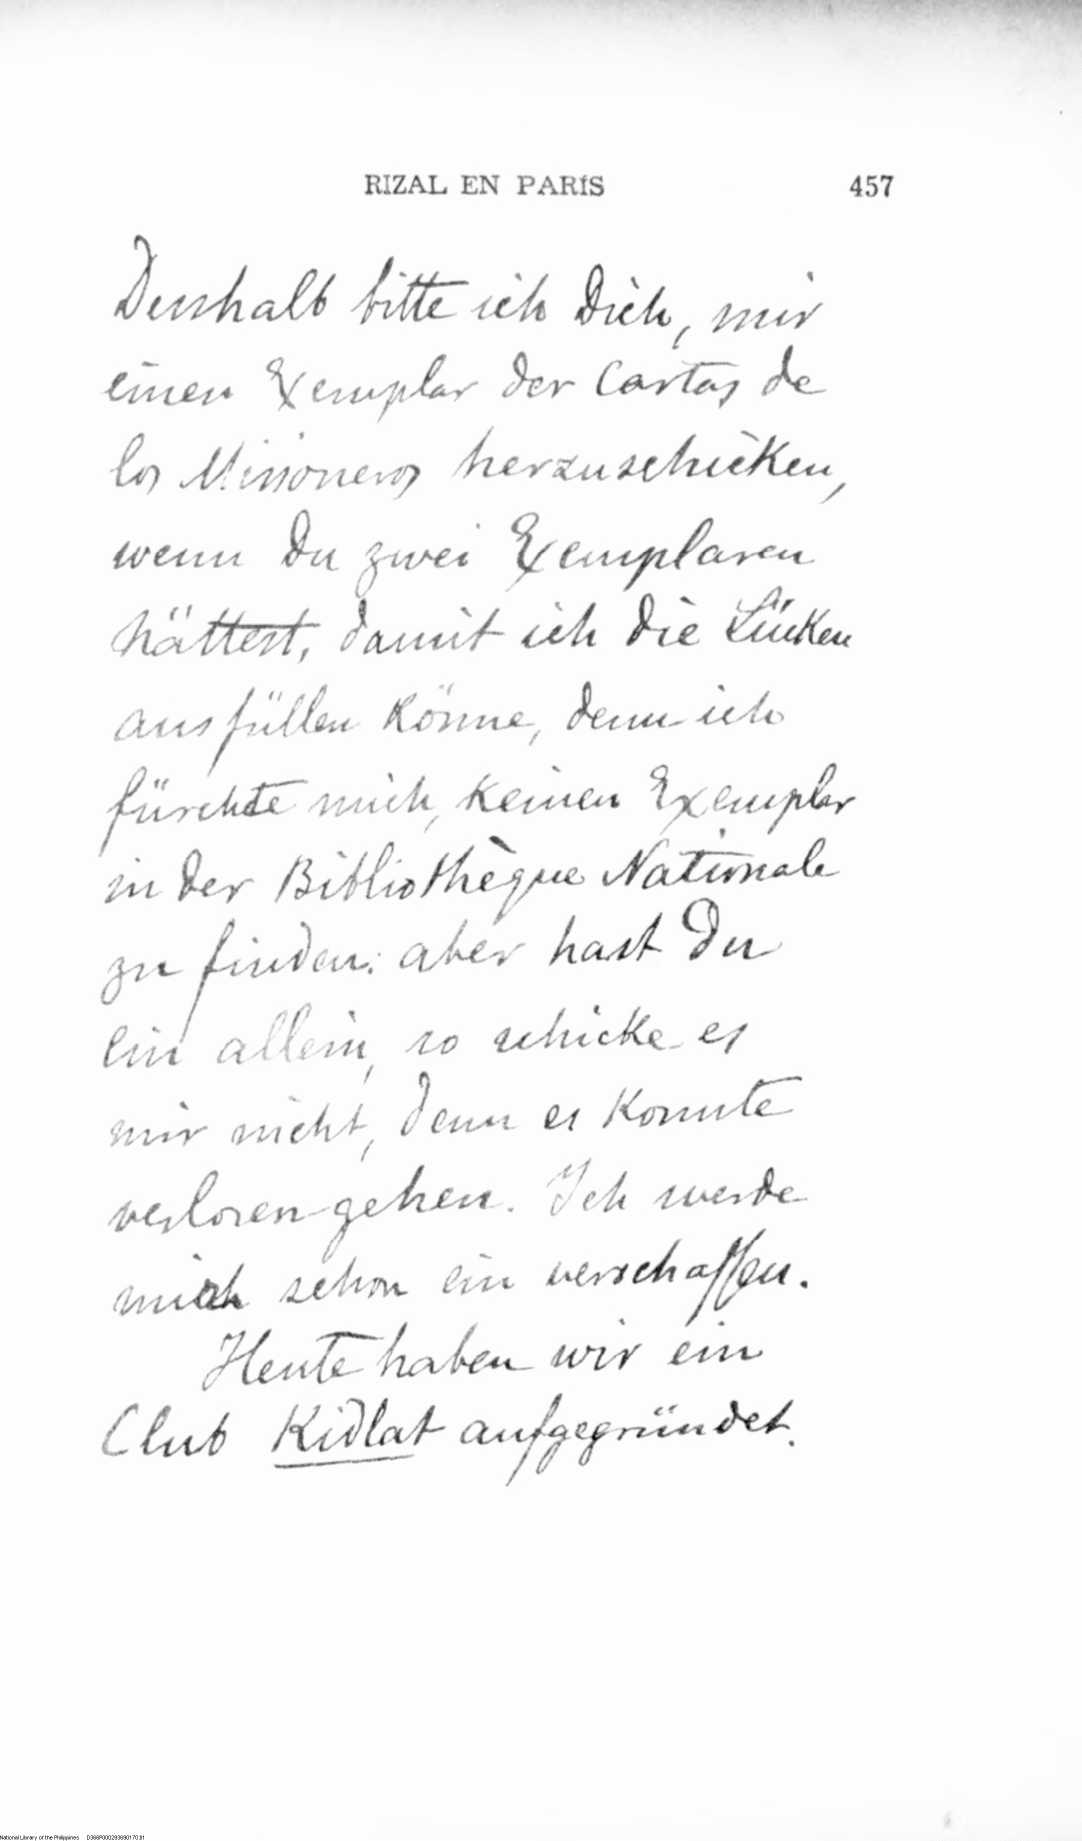 RIZAL EN PARÍS 457
Desshalb bitte ich Dich, mir
einen Exemplar der Cartas de
los Missoneros herzuschicken,
wenn Du zwei Exemplaren
hättest, damit ich die Lücken
ausfüllen könne, denn ich
fürchte mich, keinen Exemplar
in der Bibliothèque Nationale
zu finden: aber hast Du
ein allein, so schicke es
mir nicht, denn es konnte
verloren gehen. Ich werde
mich schon ein verschaffen.
Heute haben wir ein
Club Kidlat aufgegründet.
National Library of the Philippines